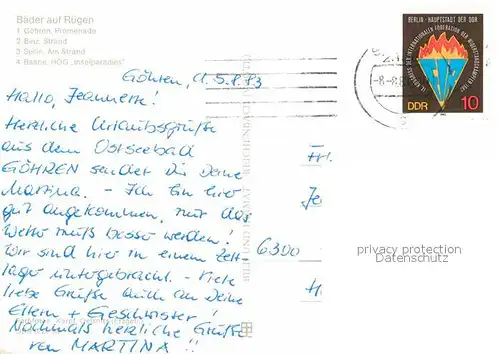 Bäder auf Rügen
1 Göhren, Promenade
2 Binz, Strand
3 Sellin, Am Strand
4 Baabe, HOG „Inselparadies"
Göhren, d. 5.8.83
Hallo, Jeannette!
Herzliche Urlaubsgrüße
aus dem Ostseebad
GÖHREN sendet Dir Deine
Martina. - Ich bin hier
gut angekommen, nur das
Wetter muß besser werden!
Wir sind hier in einem Zelt-
lager untergebracht. - Viele
liebe Grüße auch an Deine
Eltern + Geschwister!
Nochmals herzliche Grüße
von MARTINA!!
BERLIN · HAUPTSTADT DER DDR
DDR 10
-8.-8.8
Frl.
Je
6300
H
privacy protection
Datenschutz